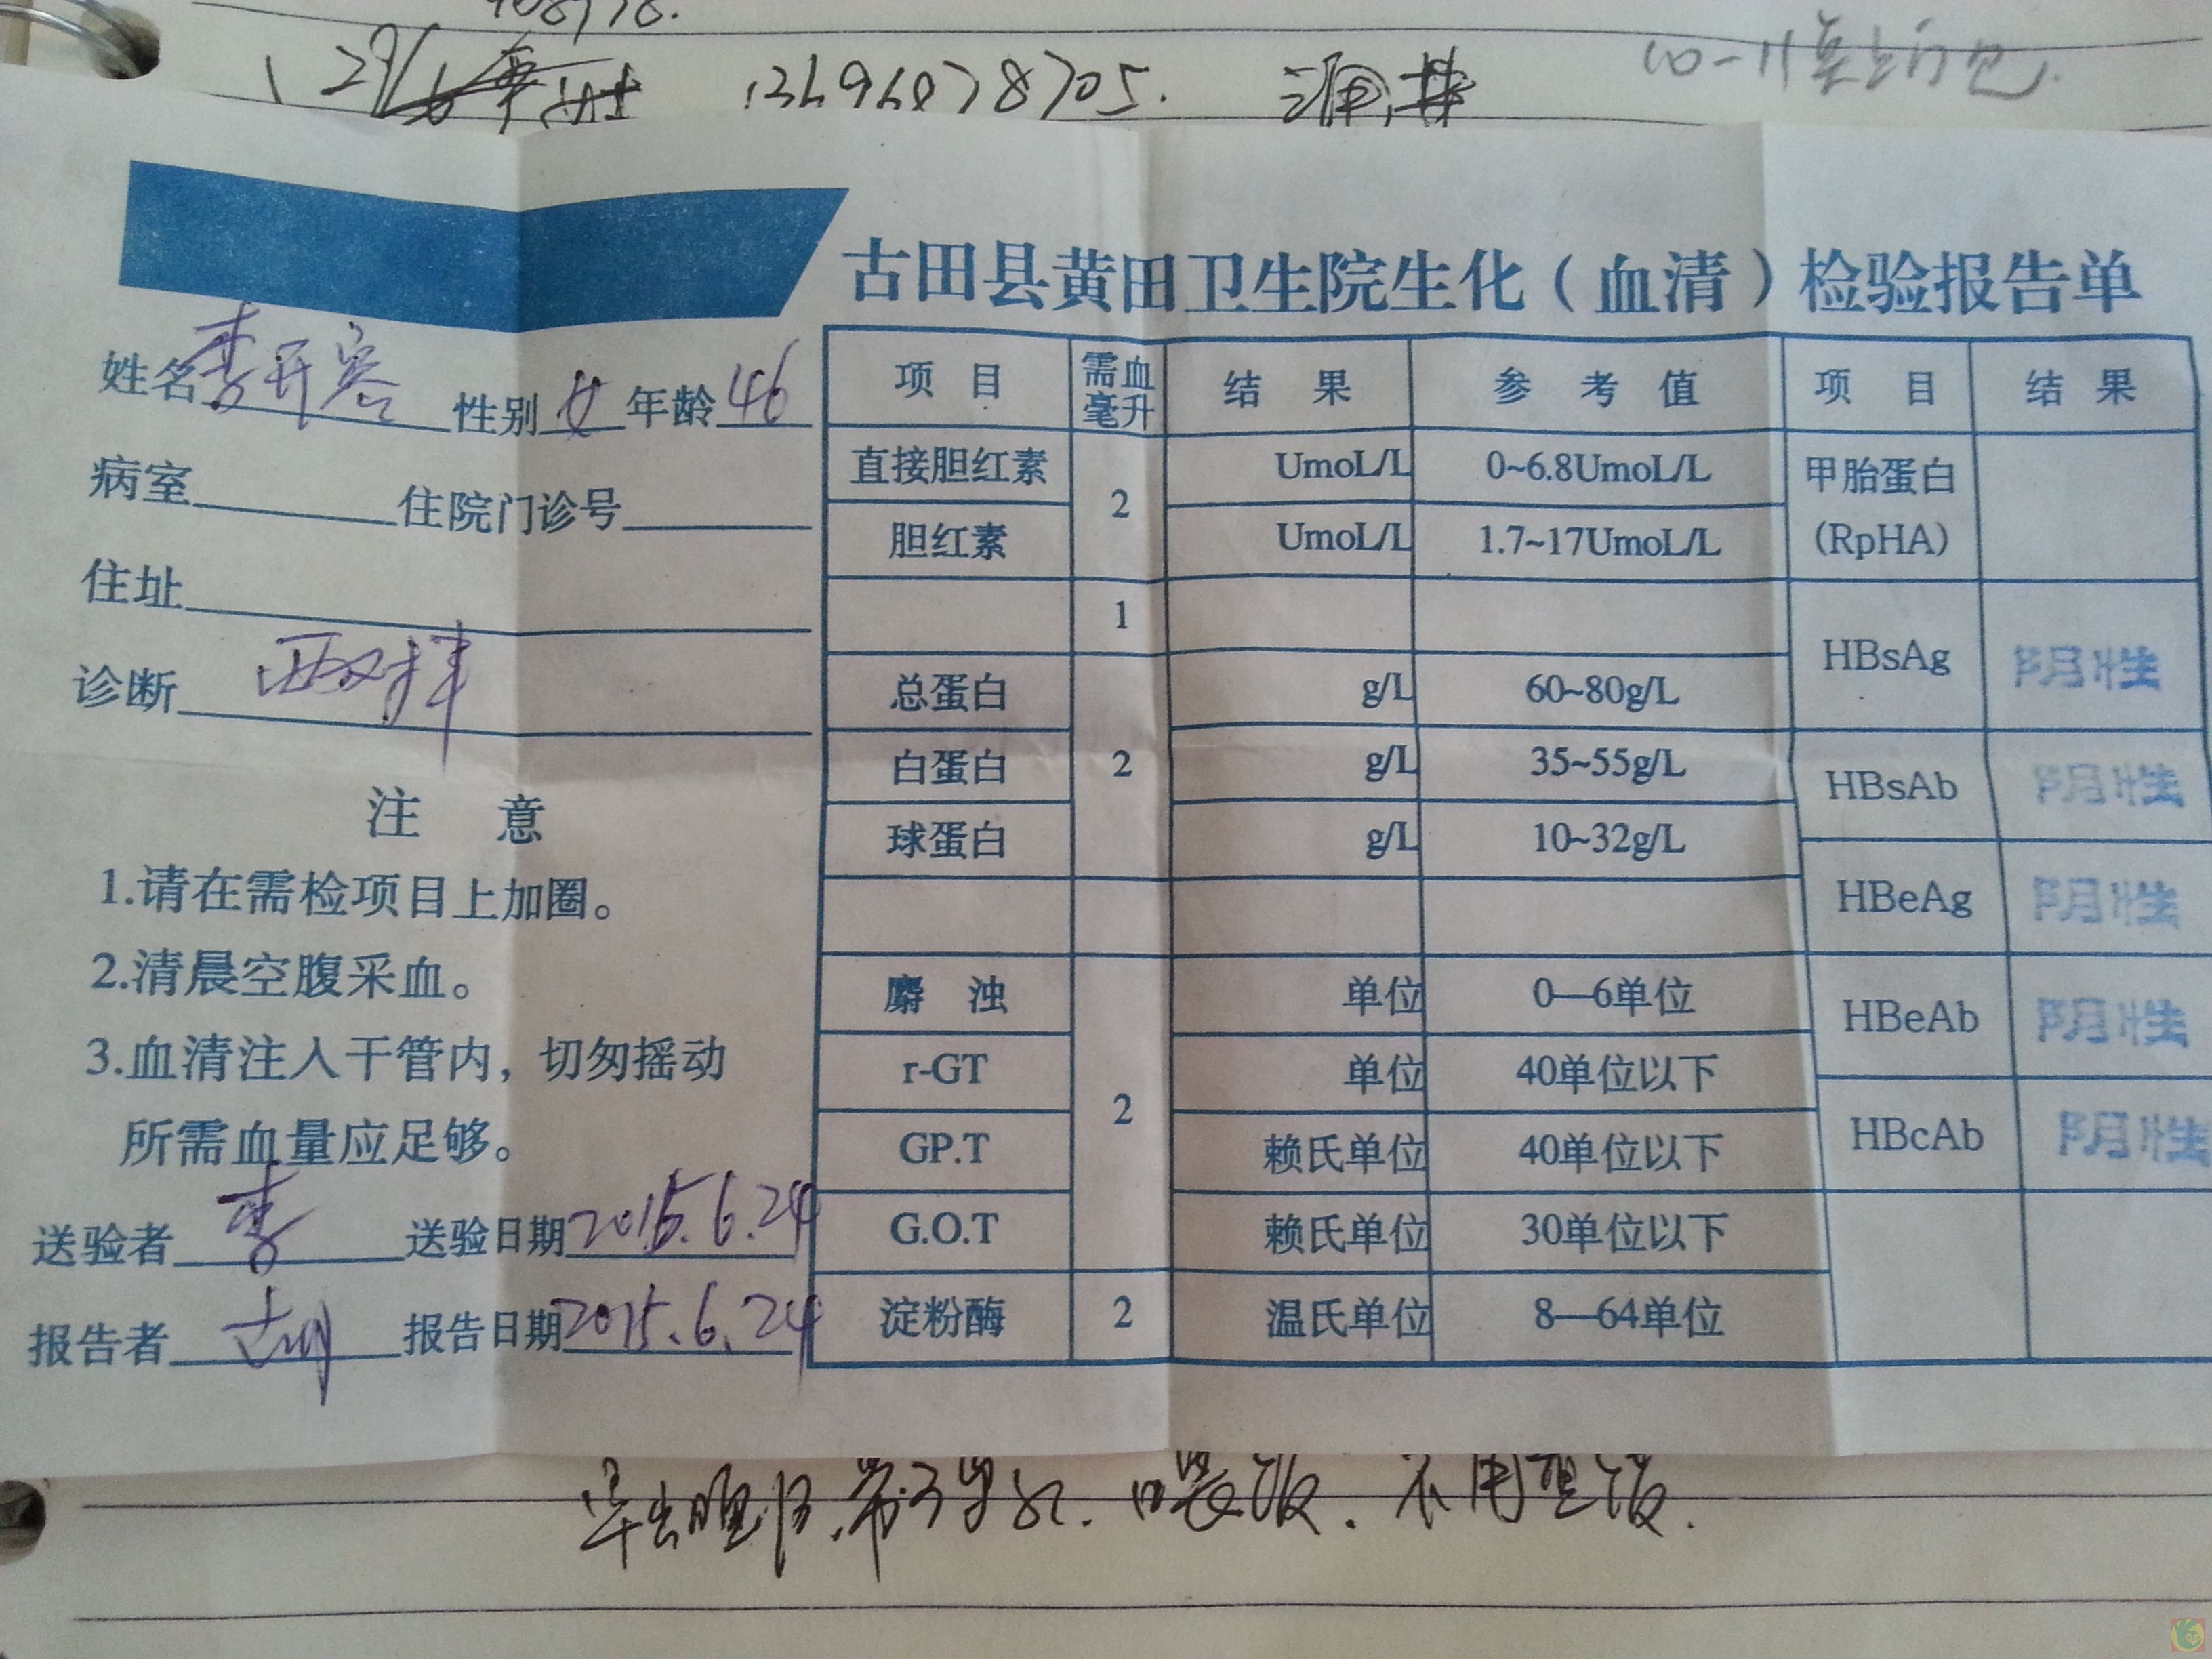 13696878705.
古田县黄田卫生院生化（血清）检验报告单
姓名 李开容 性别 女 年龄 46
病室 住院门诊号
住址
诊断
注 意
1.请在需检项目上加圈。
2.清晨空腹采血。
3.血清注入干管内，切匆摇动
所需血量应足够。
送验者 李 送验日期 2015.6.24
报告者 报告日期 2015.6.24
项 目 需血毫升 结 果 参 考 值 项 目 结 果
直接胆红素 2 UmoL/L 0~6.8UmoL/L 甲胎蛋白
胆红素 UmoL/L 1.7~17UmoL/L (RpHA)
1
HBsAg 阴性
总蛋白 g/L 60~80g/L
白蛋白 2 g/L 35~55g/L HBsAb 阴性
球蛋白 g/L 10~32g/L
HBeAg 阴性
麝 浊 单位 0—6单位 HBeAb 阴性
r-GT 单位 40单位以下
GP.T 2 赖氏单位 40单位以下 HBcAb 阴性
G.O.T 赖氏单位 30单位以下
淀粉酶 2 温氏单位 8—64单位